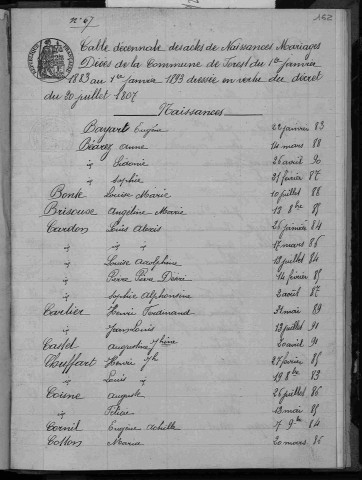 N° 67
162
Table décennale des actes de Naissances Mariages
Décès de la Commune de Forest du 1er Janvier
1883 au 1er Janvier 1893 dressée en vertu du décret
du 20 juillet 1807
Naissances
Bayart Eugène 22 janvier 83
Béarez Anne 14 mars 88
id Sidonie 26 avril 90
id Sophie 21 février 87
Bonte Louise Marie 10 juillet 88
Brisouse Angeline Marie 13 8bre 85
Cardon Louis Alexis 26 janvier 84
id id id 17 mars 86
id Louise Adolphine 13 juillet 84
id Pierre 14 février 85
id Sophie Alphonsine 2 août 87
Carlier Henri Ferdinand 31 mai 89
id Jean Louis 13 juillet 91
Castel Augustine 30 avril 91
Chuffart Henri Jh 27 février 85
id Louis id 19 8bre 83
Coisne Auguste 26 juillet 86
id Félicie 13 mai 85
Cornil Eugène Achille 7 9bre 84
Maria 20 mars 86